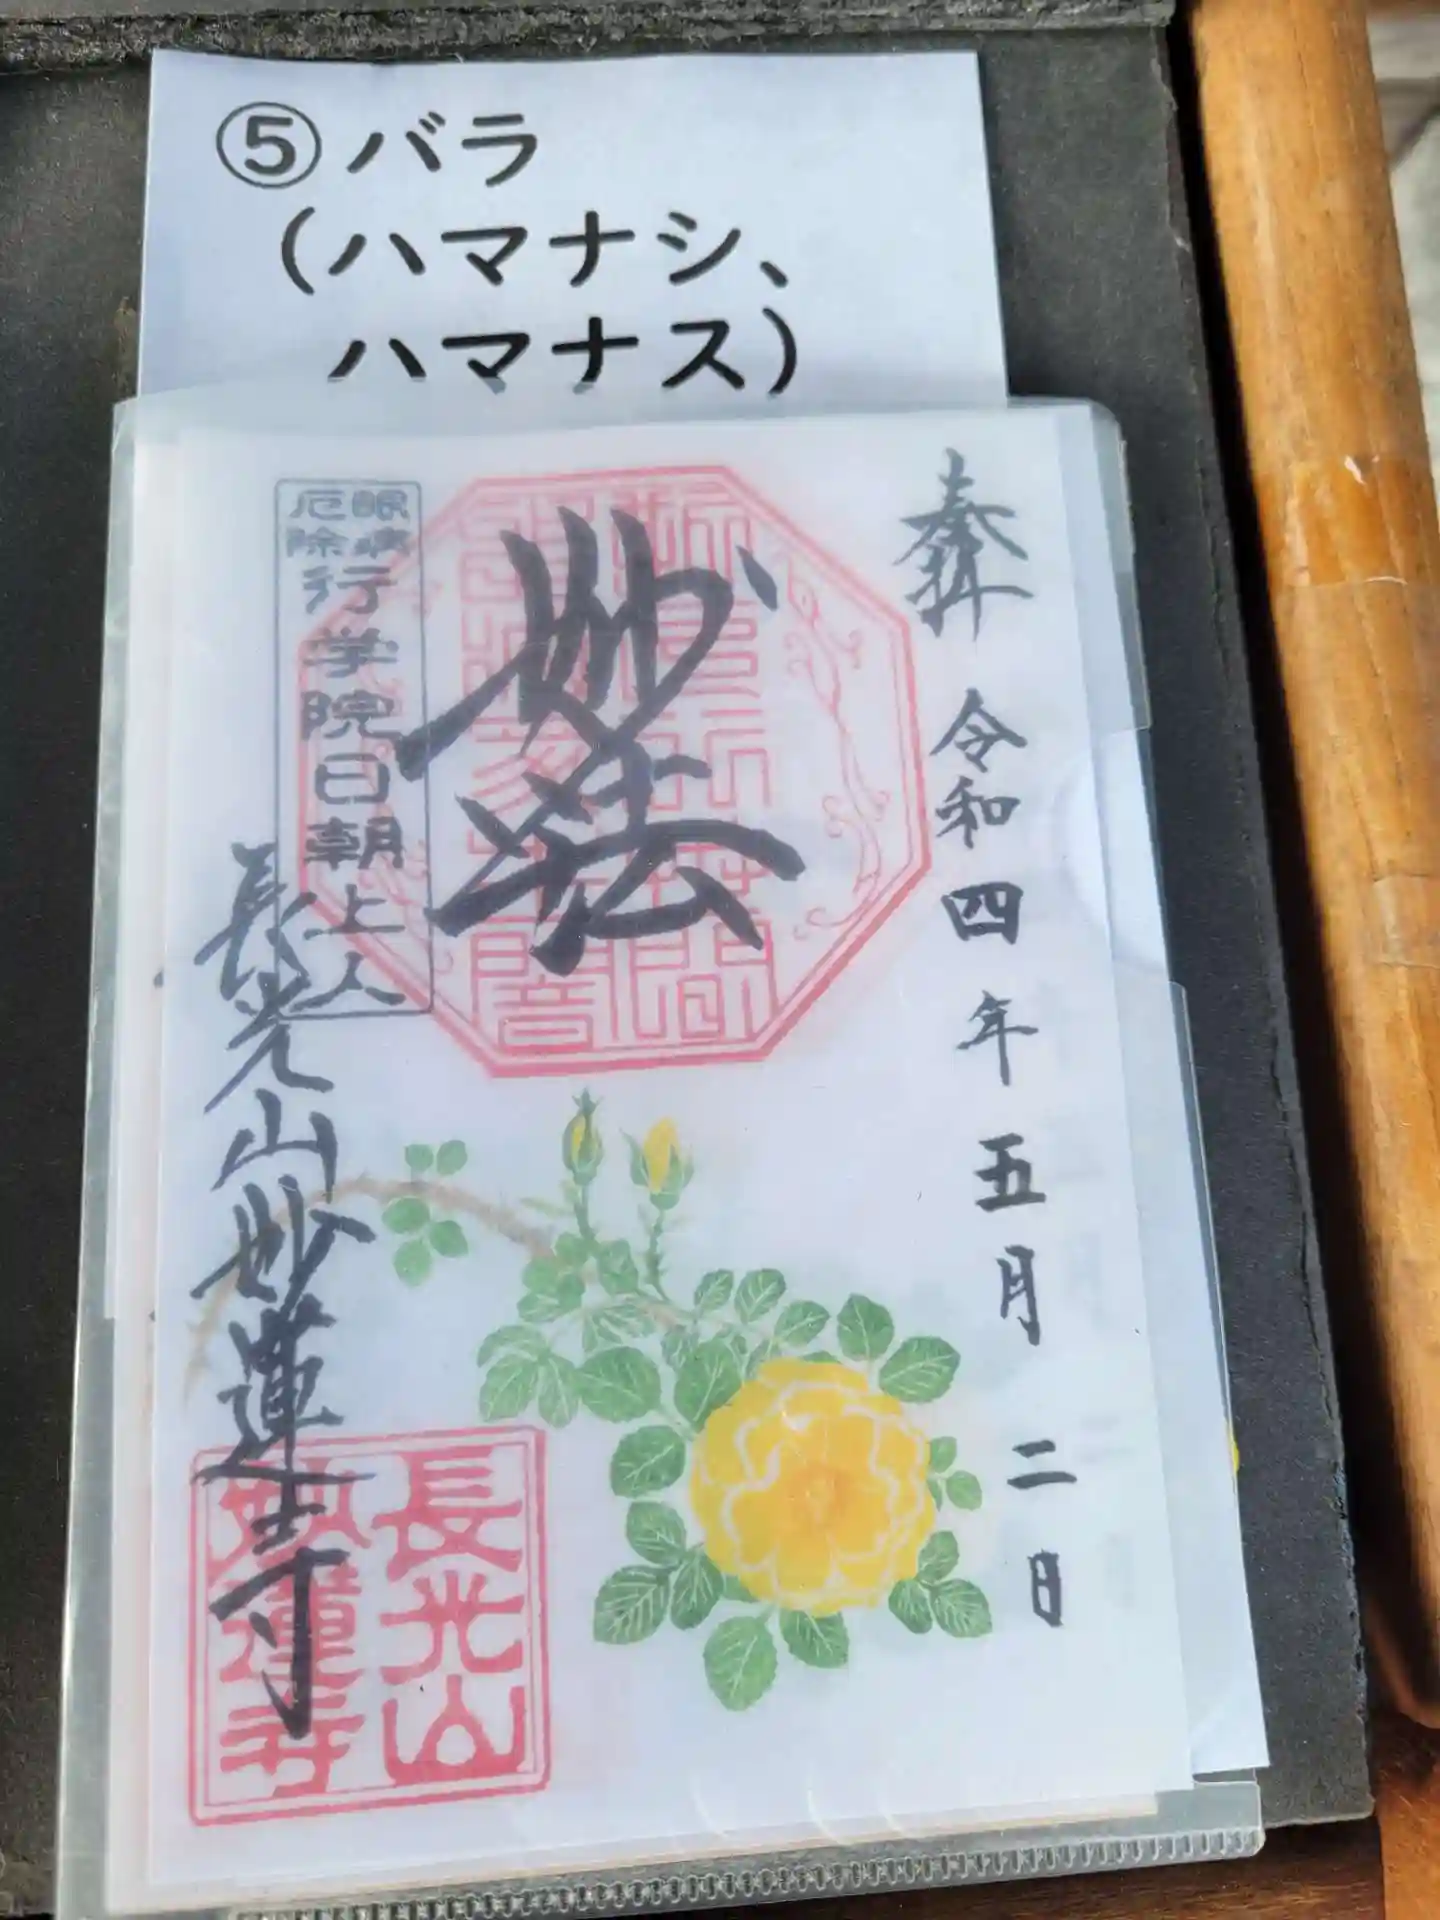 ⑤バラ
（ハマナシ、
ハマナス）
奉拝
令和四年五月二日
妙法
眼病
厄除
行学院日朝上人
長光山妙蓮寺
長光山
妙蓮寺